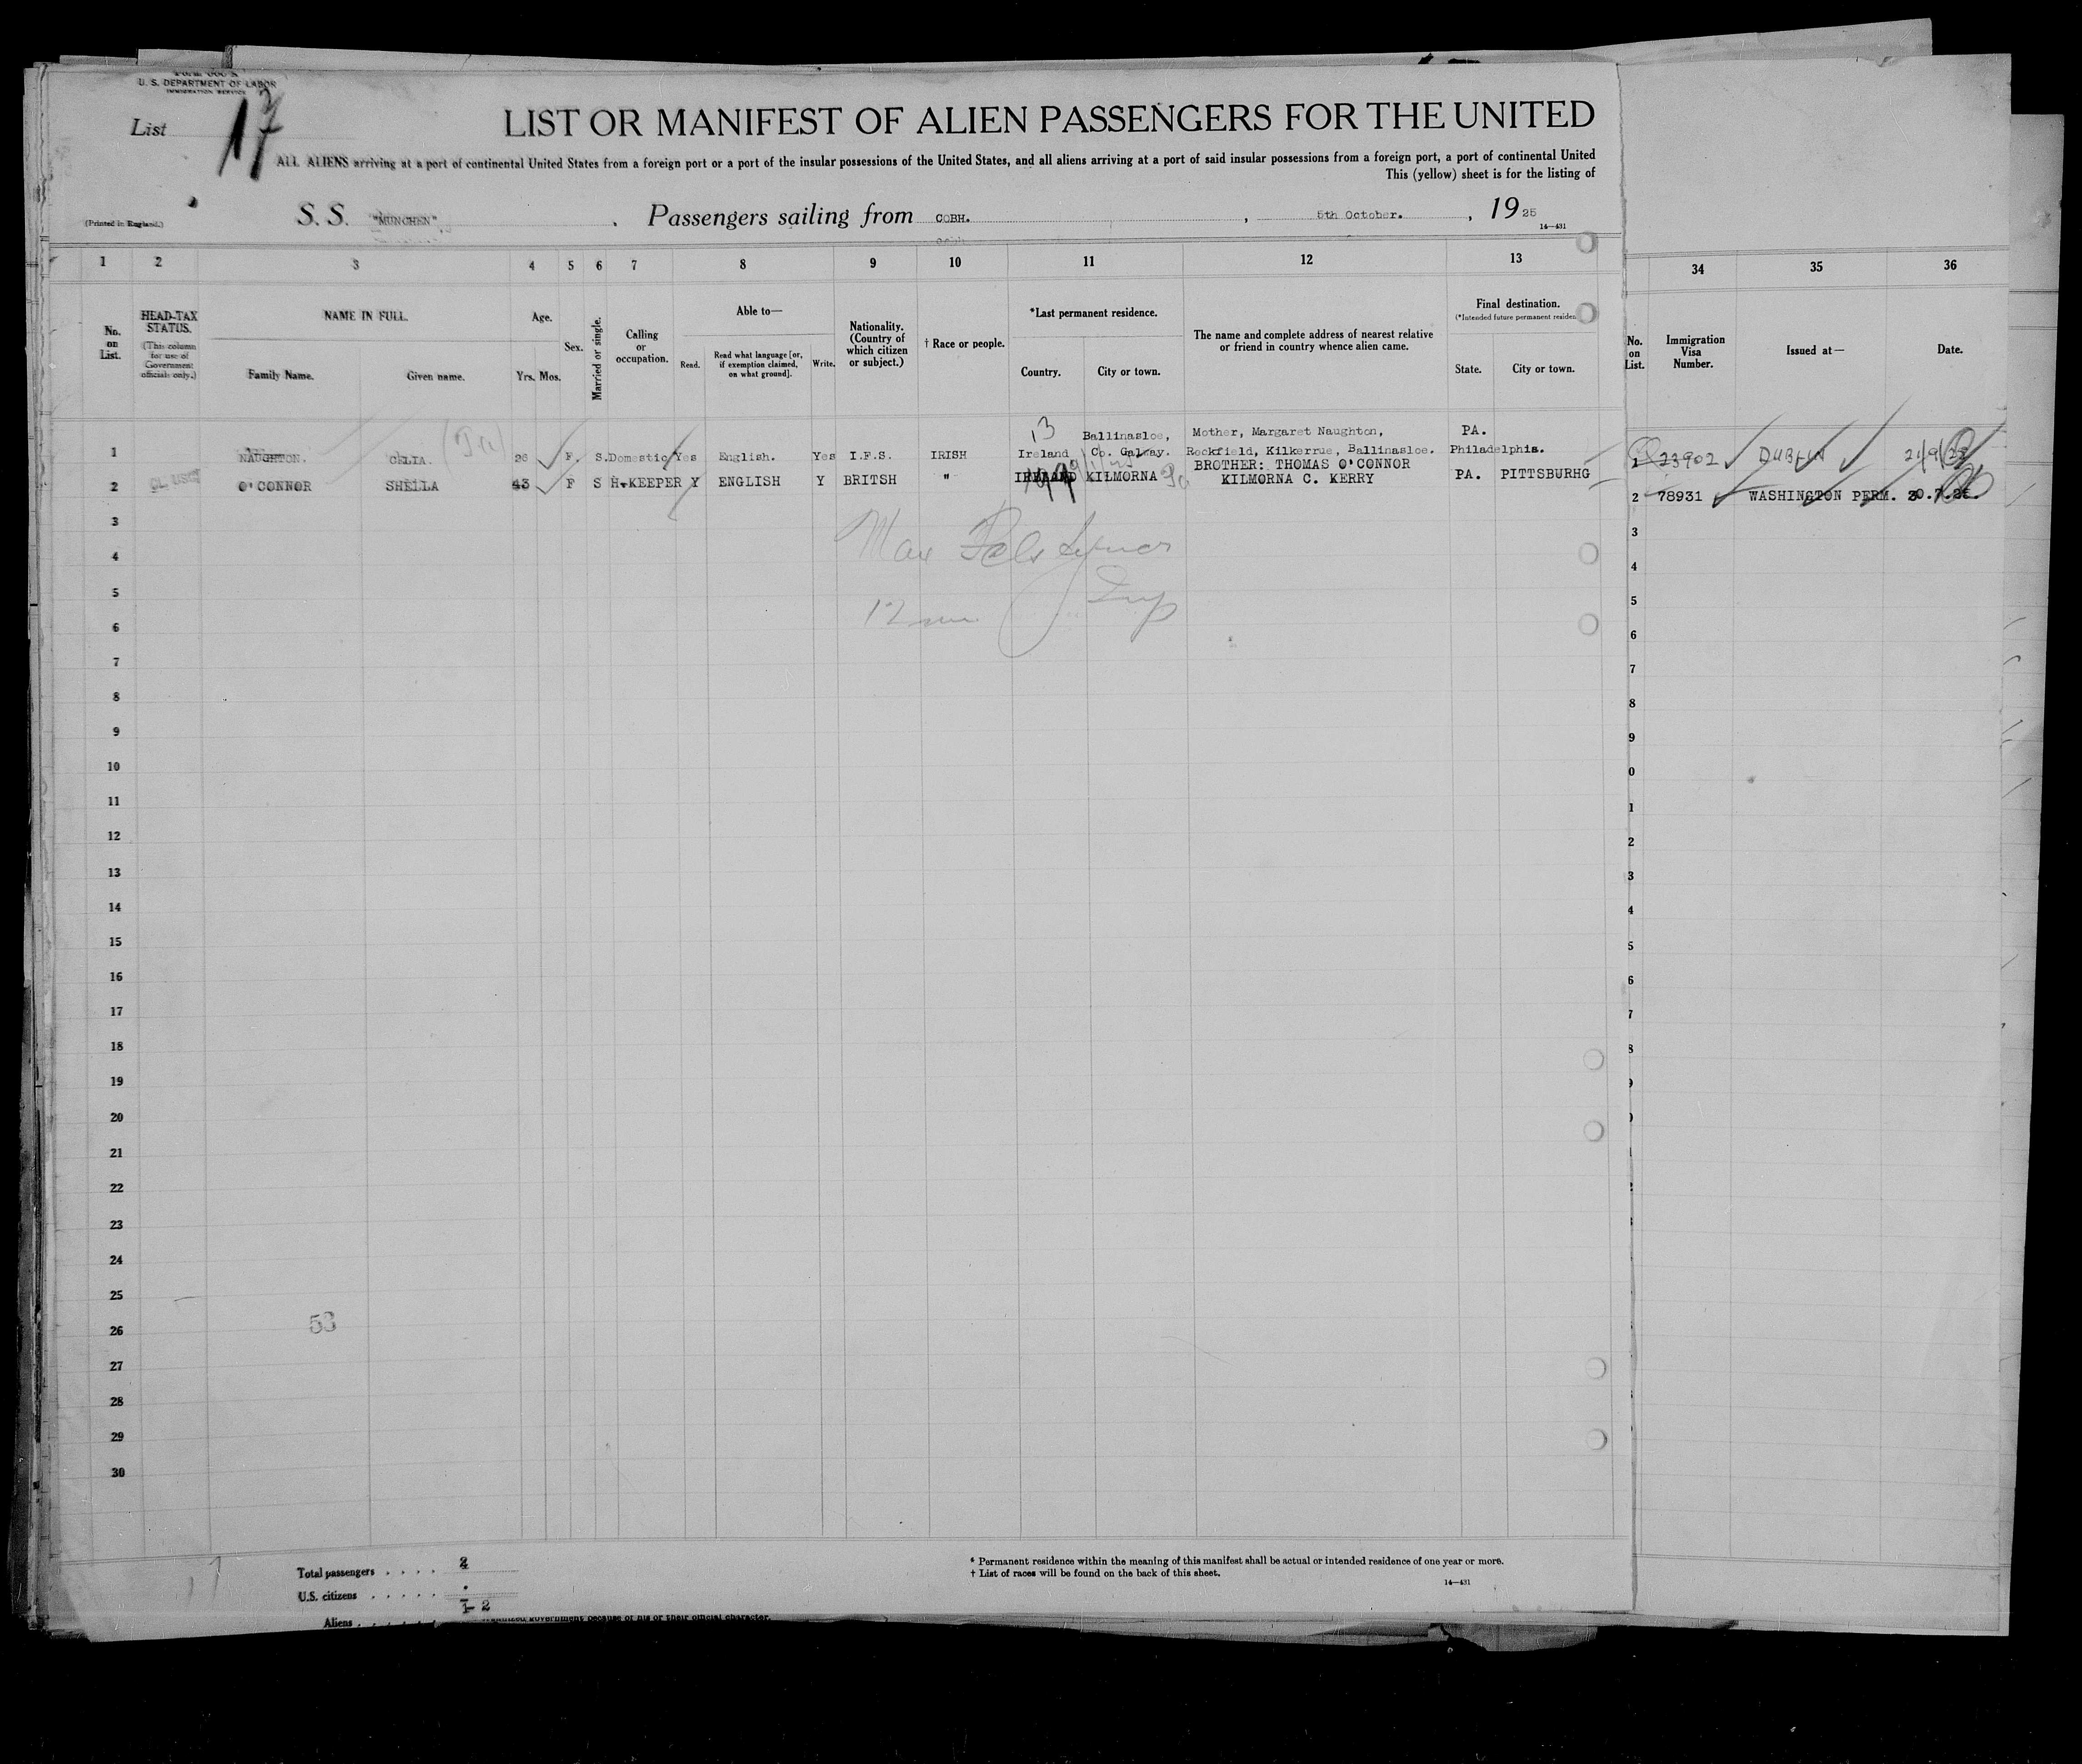 U. S. DEPARTMENT OF LABOR
IMMIGRATION SERVICE
List 17
LIST OR MANIFEST OF ALIEN PASSENGERS FOR THE UNITED
ALL ALIENS arriving at a port of continental United States from a foreign port or a port of the insular possessions of the United States, and all aliens arriving at a port of said insular possessions from a foreign port, a port of continental United
This (yellow) sheet is for the listing of
(Printed in England.)
S. S. "MUNCHEN" , Passengers sailing from COBH. , 5th October. , 1925
14—431
1 2 3 4 5 6 7 8 9 10 11 12 13 34 35 36
No. on List.
HEAD-TAX STATUS.
(This column for use of Government officials only.)
NAME IN FULL.
Family Name. Given name.
Age.
Yrs. Mos.
Sex.
Married or single.
Calling or occupation.
Able to—
Read. Read what language [or, if exemption claimed, on what ground]. Write.
Nationality. (Country of which citizen or subject.)
† Race or people.
*Last permanent residence.
Country. City or town.
The name and complete address of nearest relative or friend in country whence alien came.
Final destination.
(*Intended future permanent residen
State. City or town.
No. on List.
Immigration Visa Number.
Issued at—
Date.
13 Ballinasloe, Mother, Margaret Naughton, PA.
1 NAUGHTON. CELIA. 26 F. S. Domestic Yes English. Yes I.F.S. IRISH Ireland Co. Galway. Rockfield, Kilkerrue, Ballinasloe. Philadelphia. 1 23902 DUBLIN
BROTHER: THOMAS O'CONNOR
2 O'CONNOR SHEILA 43 F S H-KEEPER Y ENGLISH Y BRITSH " IRELAND KILMORNA Pa KILMORNA C. KERRY PA. PITTSBURHG
2 78931 WASHINGTON PERM.
3 3
4 4
5 5
6 6
7 7
8 8
9 9
10 0
11 1
12 2
13 3
14 4
15 5
16 6
17 7
18 8
19 9
20
21
22
23
24
25
26
53
27
28
29
30
Total passengers . . . . 2
U.S. citizens . . . . .
Aliens . . . . . 2
* Permanent residence within the meaning of this manifest shall be actual or intended residence of one year or more.
† List of races will be found on the back of this sheet.
14—431
government because of his or their official character.